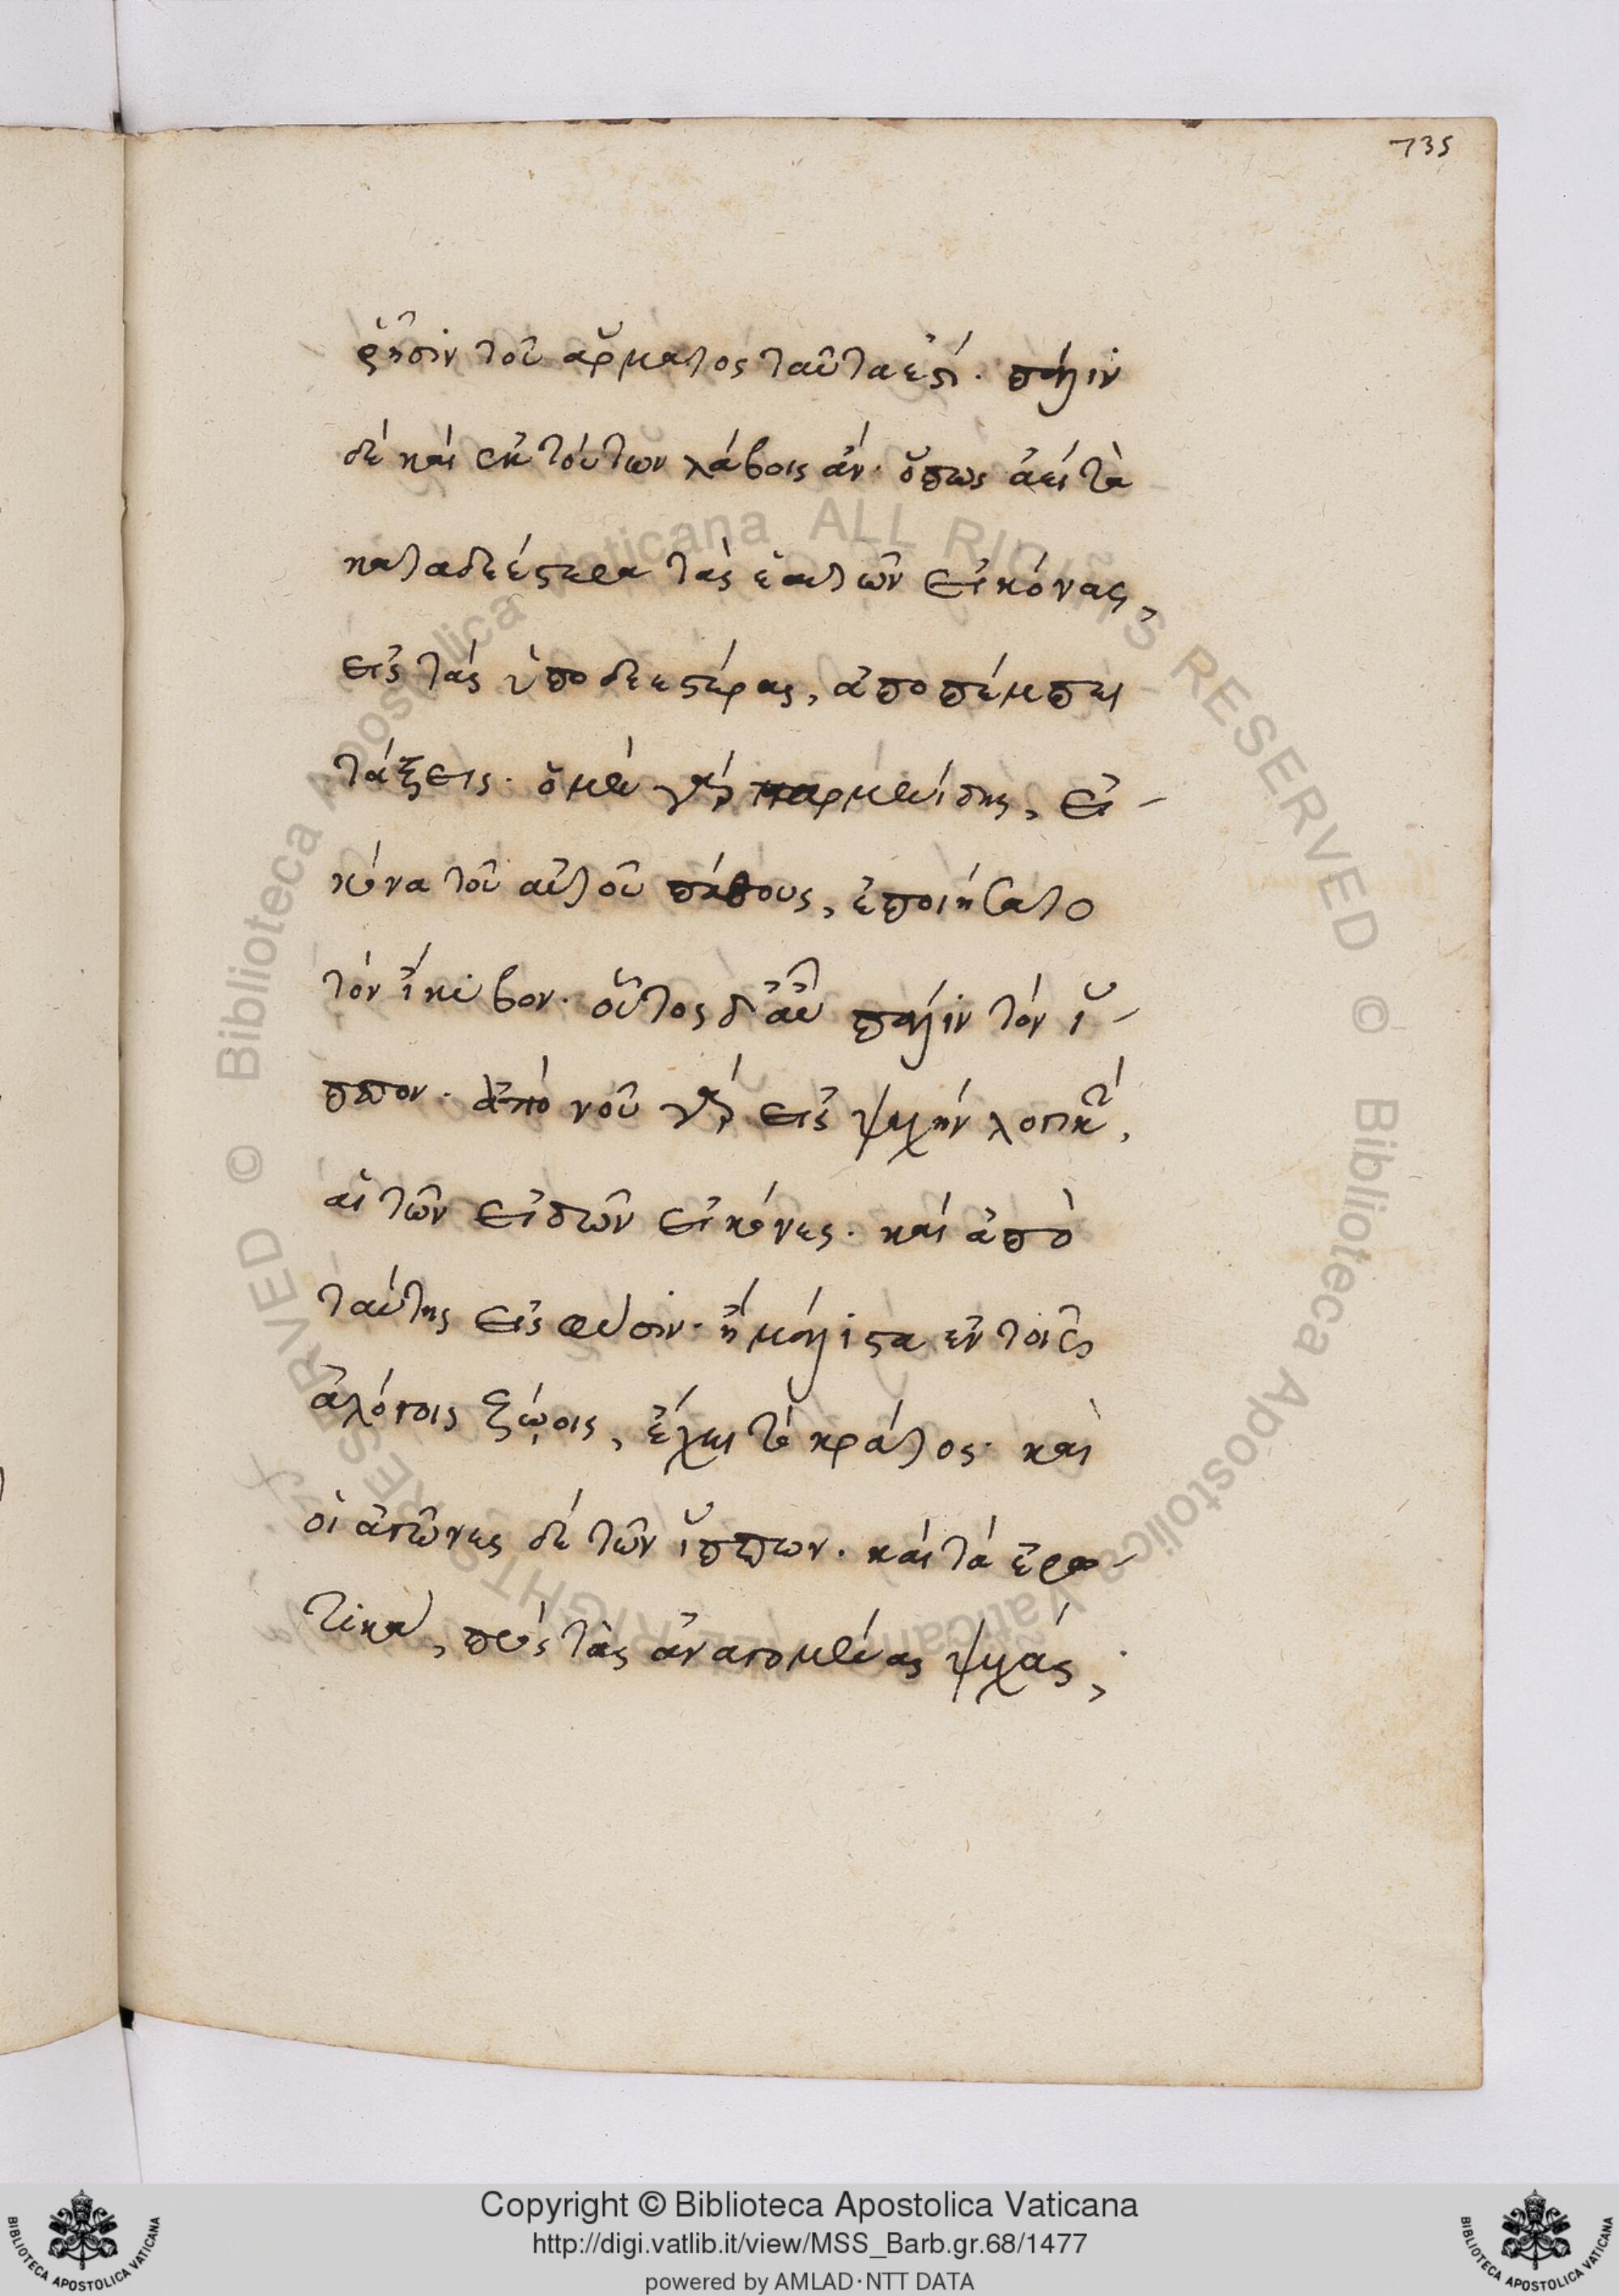 735
ῥῆσιν τοῦ ἅρματος ταῦτα ἐστί. πάλιν
δὲ καὶ ἐκ τούτων λάβοις ἄν· ὅπως ἀεὶ τὰ
καταδεέστερα τὰς ἑαυτῶν εἰκόνας,
εἰς τὰς ὑποδεεστέρας, ἀποπέμπει
τάξεις. ὁ μὲν γὰρ παρμενίδης, εἰ-
κόνα τοῦ αὐτοῦ πάθους, ἐποιήσατο
τὸν ἴκυβον. οὗτος δ' αὖ πάλιν τὸν ἵ-
ππον. ἀπὸ νοῦ γὰρ εἰς ψυχὴν λογικὴν,
αἱ τῶν εἰδῶν εἰκόνες. καὶ ἀπὸ
ταύτης εἰς φύσιν. ἣ μάλιστα ἐν τοῖς
ἀλόγοις ζώοις, ἔχει τὸ κράτος· καὶ
οἱ ἀγῶνες δὲ τῶν ἵππων. καὶ τὰ ἐρω-
τικά, πρὸς τὰς ἀναγομένας ψυχάς,
© Biblioteca Apostolica Vaticana ALL RIGHTS RESERVED © Biblioteca Apostolica Vaticana ALL RIGHTS RESERVED
Copyright © Biblioteca Apostolica Vaticana
http://digi.vatlib.it/view/MSS_Barb.gr.68/1477
powered by AMLAD·NTT DATA
BIBLIOTECA APOSTOLICA VATICANA
BIBLIOTECA APOSTOLICA VATICANA